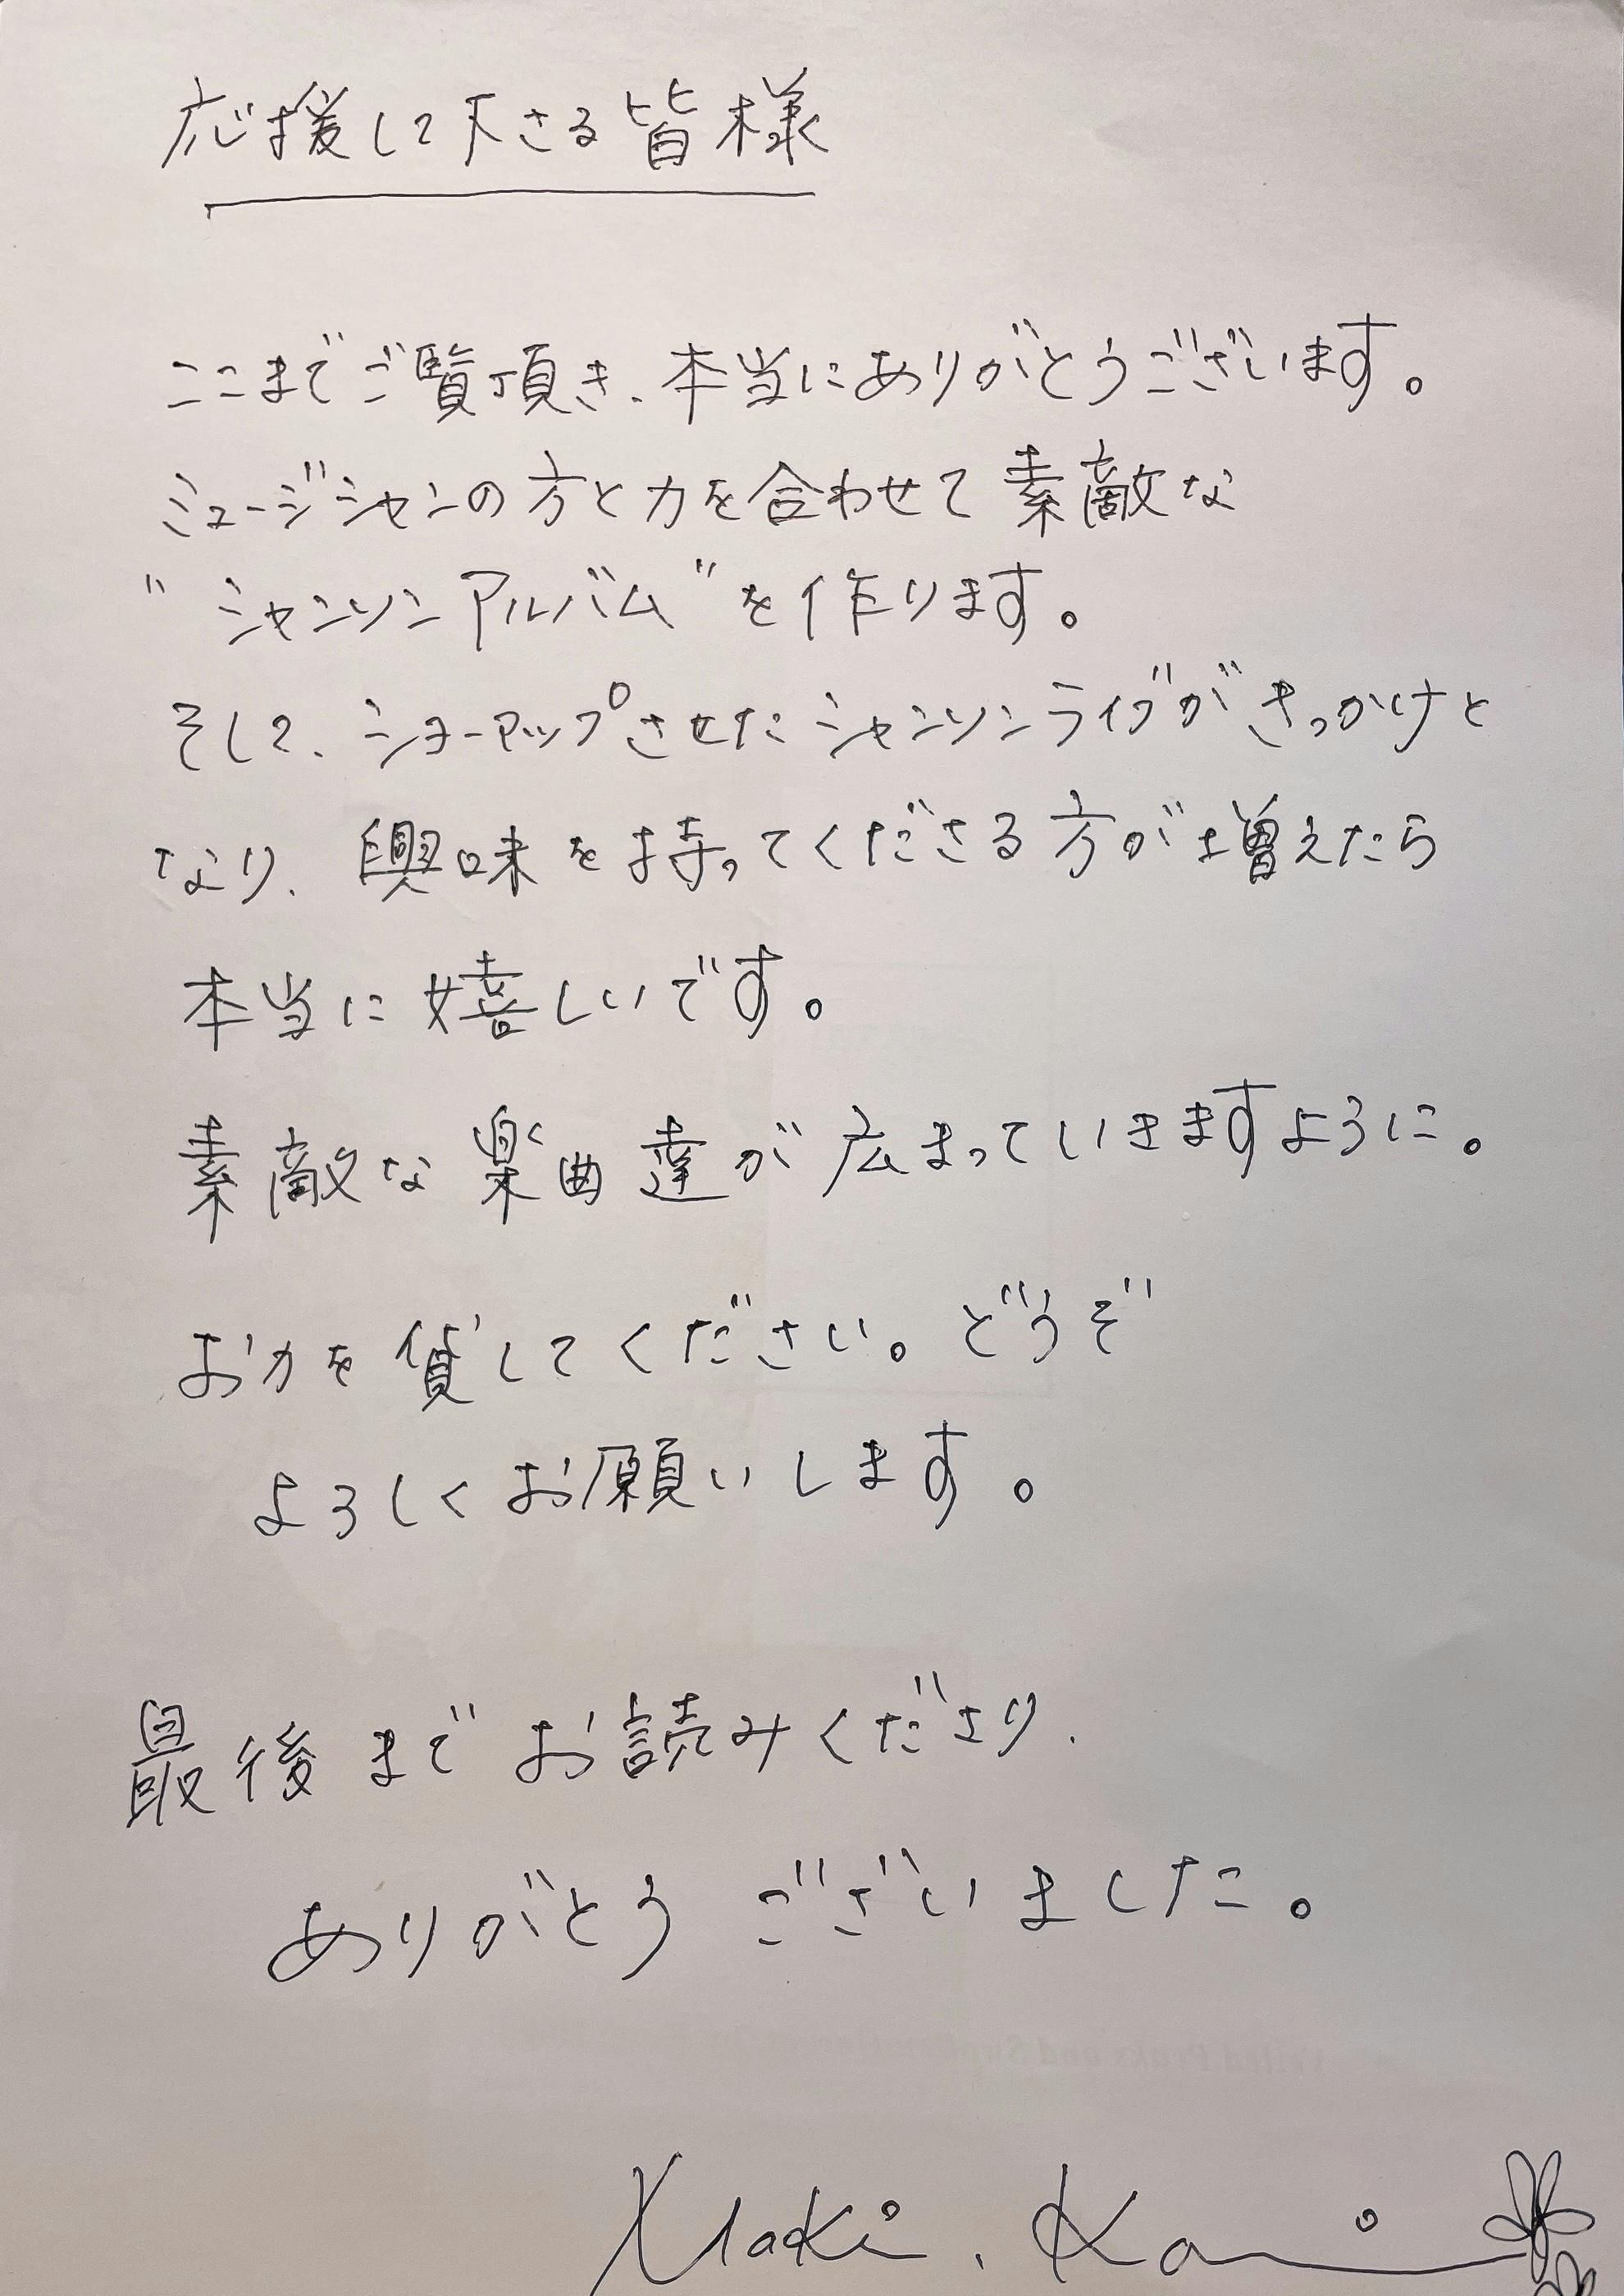 応援して下さる皆様
ここまでご覧頂き、本当にありがとうございます。
ミュージシャンの方と力を合わせて素敵な
"シャンソンアルバム"を作ります。
そして、ショーアップさせたシャンソンライブがきっかけと
なり、興味を持ってくださる方が増えたら
本当に嬉しいです。
素敵な楽曲達が広まっていきますように。
お力を貸してください。どうぞ
よろしくお願いします。
最後までお読みくださり、
ありがとうございました。
Maki.